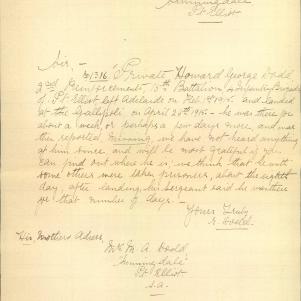 Sunningdale
Pt Elliot
Sir,
1316 Private Howard George Dodd,
2nd Reinforcement, 15th Battalion, 4 Infantry Brigade
of Pt Elliot left Adelaide on Feb 1915, and landed
at the Gallipoli on April 25th 1915 - he was there for
about a week or perhaps a few days more, and
was then reported Missing we have not heard anything
of him since and will be most grateful if you
can find out where he is, we think that he with
some others were taken prisoners, about the eighth
day, after landing, his Sergeant said he was there
for that number of days.
Yours Truly
E. Dodd.
His Mothers Adress
Mrs M A Dodd
Sunningdale
Pt Elliot
S.A.